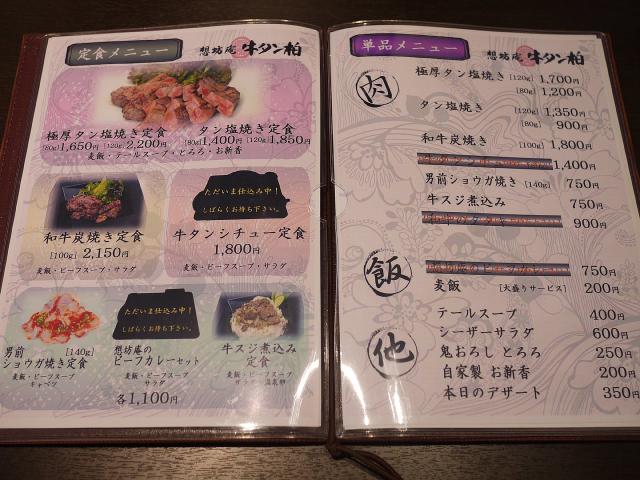 定食メニュー
想坊庵 牛タン柏
極厚タン塩焼き定食
[80g]1,650円 [120g]2,200円
タン塩焼き定食
[80g]1,400円 [120g]1,850円
麦飯・テールスープ・とろろ・お新香
和牛炭焼き定食
[100g] 2,150円
麦飯・ビーフスープ・サラダ
ただいま仕込み中!
しばらくお待ち下さい。
牛タンシチュー定食
1,800円
麦飯・ビーフスープ・サラダ
男前 [140g]
ショウガ焼き定食
麦飯・ビーフスープ
キャベツ
ただいま仕込み中!
しばらくお待ち下さい。
想坊庵の
ビーフカレーセット
麦飯・ビーフスープ
サラダ
牛スジ煮込み
定食
麦飯・ビーフスープ
サラダ・温泉卵
各1,100円
単品メニュー
想坊庵 牛タン柏
肉
極厚タン塩焼き [120g] 1,700円
[80g] 1,200円
タン塩焼き [120g] 1,350円
[80g] 900円
和牛炭焼き [100g] 1,800円
1,400円
男前ショウガ焼き [140g] 750円
牛スジ煮込み 750円
900円
飯
750円
麦飯 [大盛りサービス] 200円
他
テールスープ 400円
シーザーサラダ 600円
鬼おろし とろろ 250円
自家製 お新香 200円
本日のデザート 350円